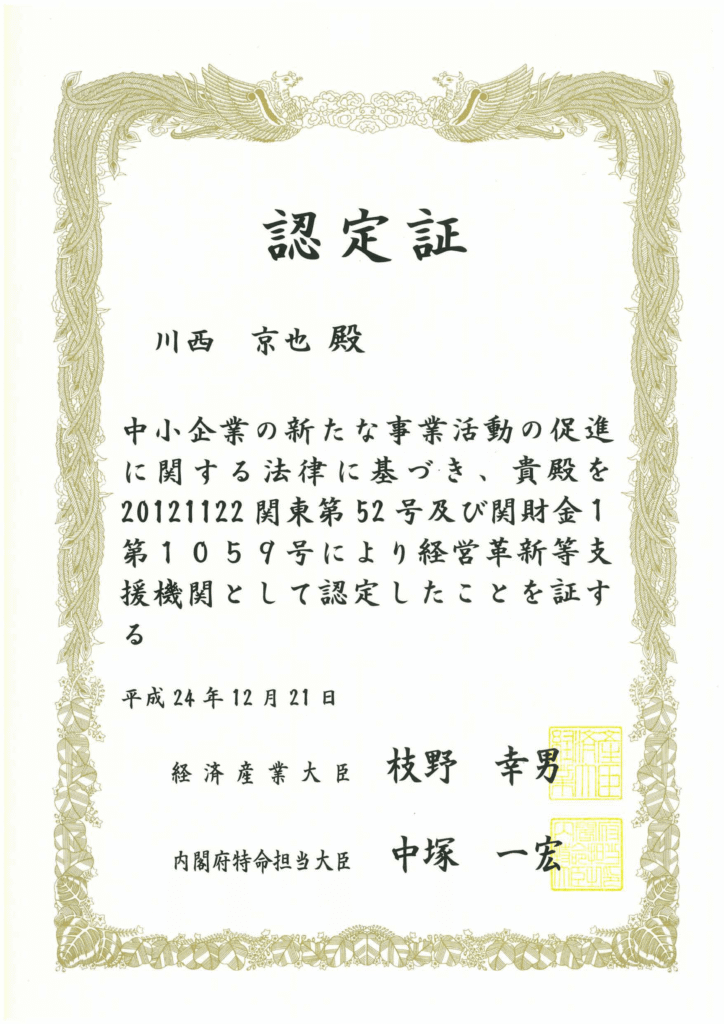 認定証
川西 京也 殿
中小企業の新たな事業活動の促進
に関する法律に基づき、貴殿を
20121122関東第52号及び関財金1
第１０５９号により経営革新等支
援機関として認定したことを証す
る
平成24年12月21日
経済産業大臣 枝野 幸男
内閣府特命担当大臣 中塚 一宏